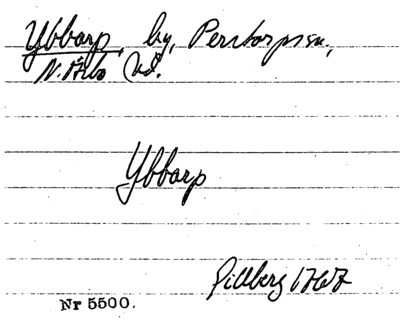 Ybbarp, by, Perstorps sn,
N. Åsbo hd.
Ybbarp
Gillberg 1767
Nr 5500.